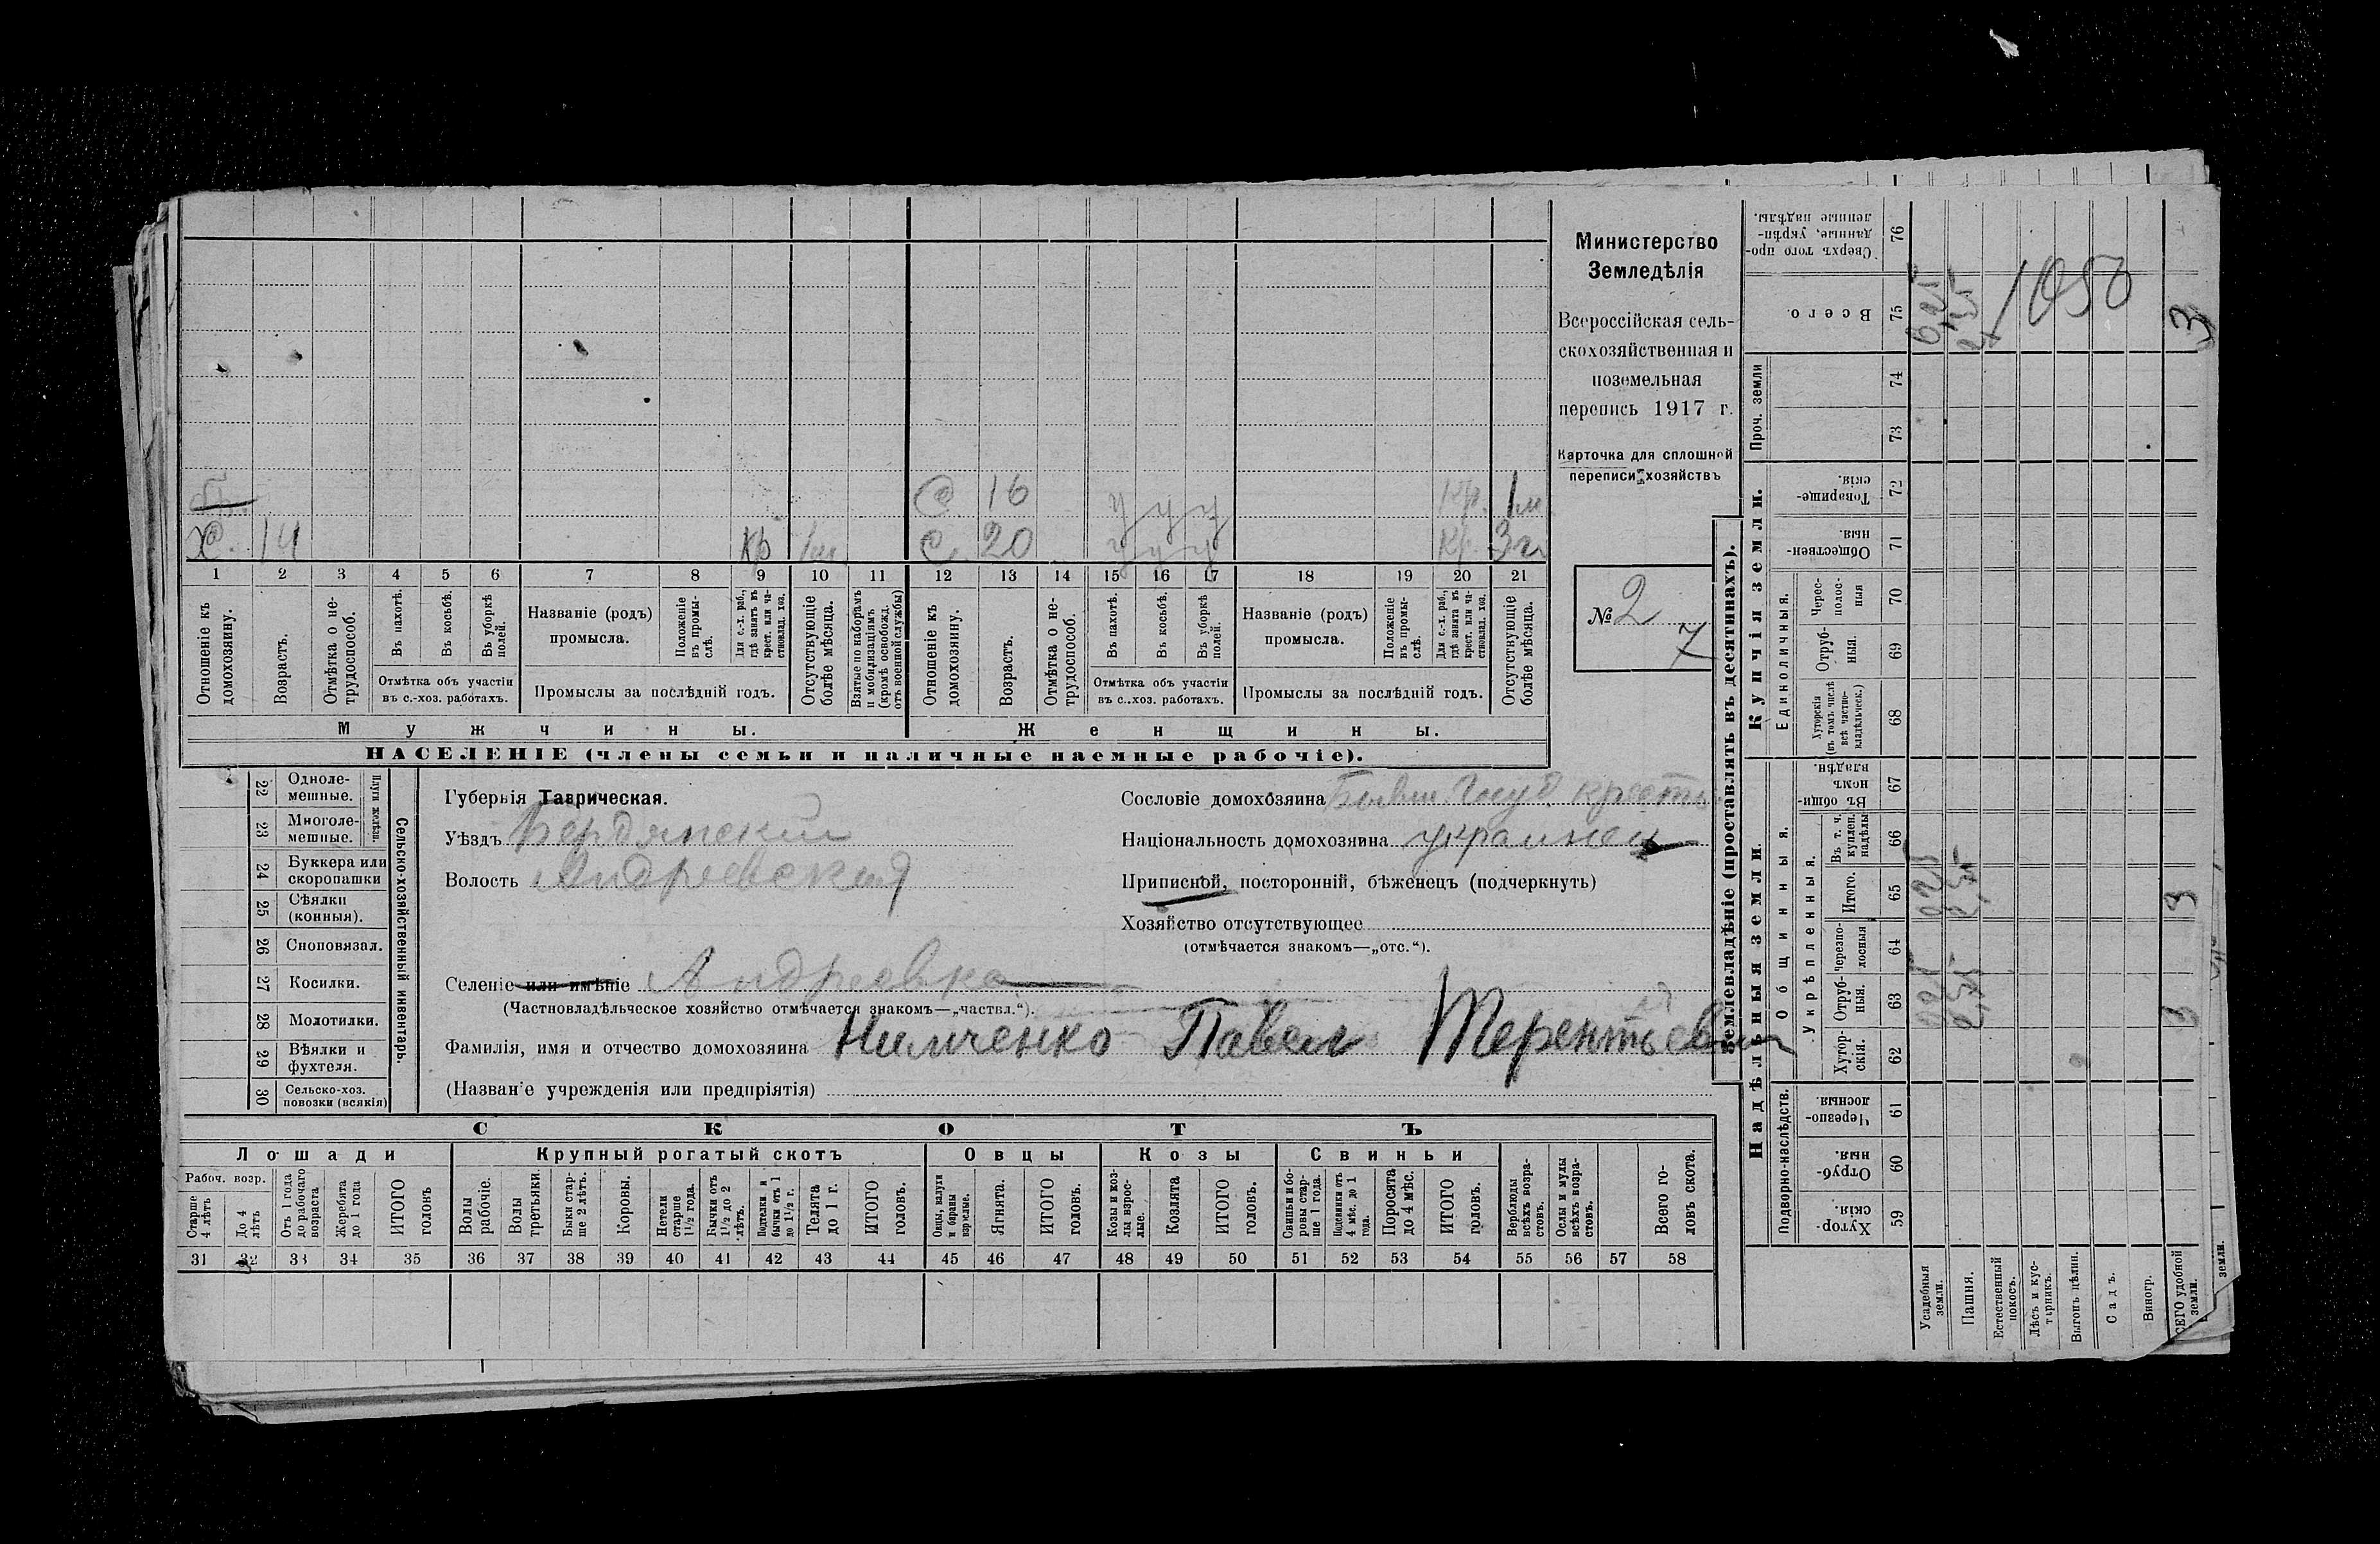 Министерство
Земледѣлія
Всероссійская сель-
скохозяйственная и
поземельная
перепись 1917 г.
Карточка для сплошной
переписи хозяйствъ
№ 2
7
С 16 у у у Кр. 1 м
Х. 14 Кр С. 20 у у у Кр. 3 г.
1 2 3 4 5 6 7 8 9 10 11 12 13 14 15 16 17 18 19 20 21
Отношеніе къ домохозяину.
Возрастъ.
Отмѣтка о не-трудоспособ.
Въ пахотѣ.
Въ косьбѣ.
Въ уборкѣ полей.
Отмѣтка объ участіи
въ с.-хоз. работахъ.
Названіе (родъ)
промысла.
Положеніе въ промы-слѣ.
Для с.-х. раб., гдѣ занятъ въ крест. или ча-стновлад. хоз.
Промыслы за послѣдній годъ.
Отсутствующіе болѣе мѣсяца.
Взятые по наборамъ и мобилизаціямъ (кромѣ освобожд. отъ военной службы)
Отношеніе къ домохозяину.
Возрастъ.
Отмѣтка о не-трудоспособ.
Въ пахотѣ.
Въ косьбѣ.
Въ уборкѣ полей.
Отмѣтка объ участіи
въ с..хоз. работахъ.
Названіе (родъ)
промысла.
Положеніе въ промы-слѣ.
Для с.-х. раб., гдѣ занятъ въ крест. или ча-стновлад. хоз.
Промыслы за послѣдній годъ.
Отсутствующіе болѣе мѣсяца.
Мужчины.
Женщины.
НАСЕЛЕНІЕ (члены семьи и наличные наемные рабочіе).
22 Одноле-мешные.
23 Многоле-мешные.
Плуги желѣзн.
24 Буккера или скоропашки
25 Сѣялки (конныя).
26 Сноповязал.
27 Косилки.
28 Молотилки.
29 Вѣялки и фухтеля.
30 Сельско-хоз. повозки (всякія)
Сельско-хозяйственный инвентарь.
Губернія Таврическая.
Уѣздъ Бердянский
Волость Андреевская
Селеніе или имѣніе Андреевка
(Частновладѣльческое хозяйство отмѣчается знакомъ—„частвл.“).
Фамилія, имя и отчество домохозяина Нимченко Павел Терентьевич
(Назван'е учрежденія или предпріятія)
Сословіе домохозяина Бывш. Госуд крест
Національность домохозяина украинец
Приписной, посторонній, бѣженецъ (подчеркнуть)
Хозяйство отсутствующее
(отмѣчается знакомъ—„отс.“).
СКОТЪ
Лошади
Крупный рогатый скотъ
Овцы
Козы
Свиньи
Рабоч. возр.
Старше 4 лѣтъ
До 4 лѣтъ
Отъ 1 года до рабочаго возраста
Жеребята до 1 года
ИТОГО головъ
Волы рабочіе.
Волы третьяки
Быки стар-ше 2 лѣтъ.
Коровы.
Нетели старше 1 1/2 года.
Бычки отъ 1 1/2 до 2 лѣтъ.
Подтелки и бычки отъ 1 до 1 1/2 г.
Телята до 1 г.
ИТОГО головъ.
Овцы, валухи и бараны взрослые.
Ягнята.
ИТОГО головъ.
Козы и коз-лы взрос-лые.
Козлята
ИТОГО головъ.
Свиньи и бо-ровы стар-ше 1 года.
Подсвинки отъ 4 мѣс. до 1 года.
Поросята до 4 мѣс.
ИТОГО головъ.
Верблюды всѣхъ возра-стовъ.
Ослы и мулы всѣхъ возра-стовъ.
Всего го-ловъ скота.
31 32 33 34 35 36 37 38 39 40 41 42 43 44 45 46 47 48 49 50 51 52 53 54 55 56 57 58
Землевладѣніе (проставлять въ десятинахъ).
Купчія земли.
Надѣльныя земли.
Сверхъ того про-данные, укрѣп-ленные надѣлы. 76
Всего. 75
1050
3
Проч. земли 74 73
Товарище-скія. 72
Обществен-ныя. 71
Единоличныя.
Черес-полос-ныя 70
Отруб-ныя. 69
Хуторскія (въ томъ числѣ всѣ частно-владѣльческ.) 68
Общинныя.
Въ общин-номъ владѣн. 67
Укрѣпленныя.
Въ т. ч. куплен. надѣлы 66
Итого. 65
3
черезпо-лосныя 64
Отруб-ныя. 63
Хутор-скія. 62
Подворно-наслѣдств.
Черезпо-лосныя. 61
Отруб-ныя. 60
Хутор-скія. 59
Усадебныя земли.
Пашня.
Естественный покосъ.
Лѣсъ и кус-тарникъ.
Выгонъ цѣлин.
Садъ.
Виногр.
СЕГО удобной земли.
земли.